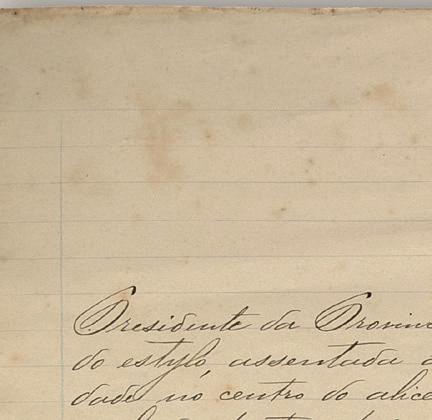 Presidente da Provinc
do estylo, assentada a
dado no centro do alice